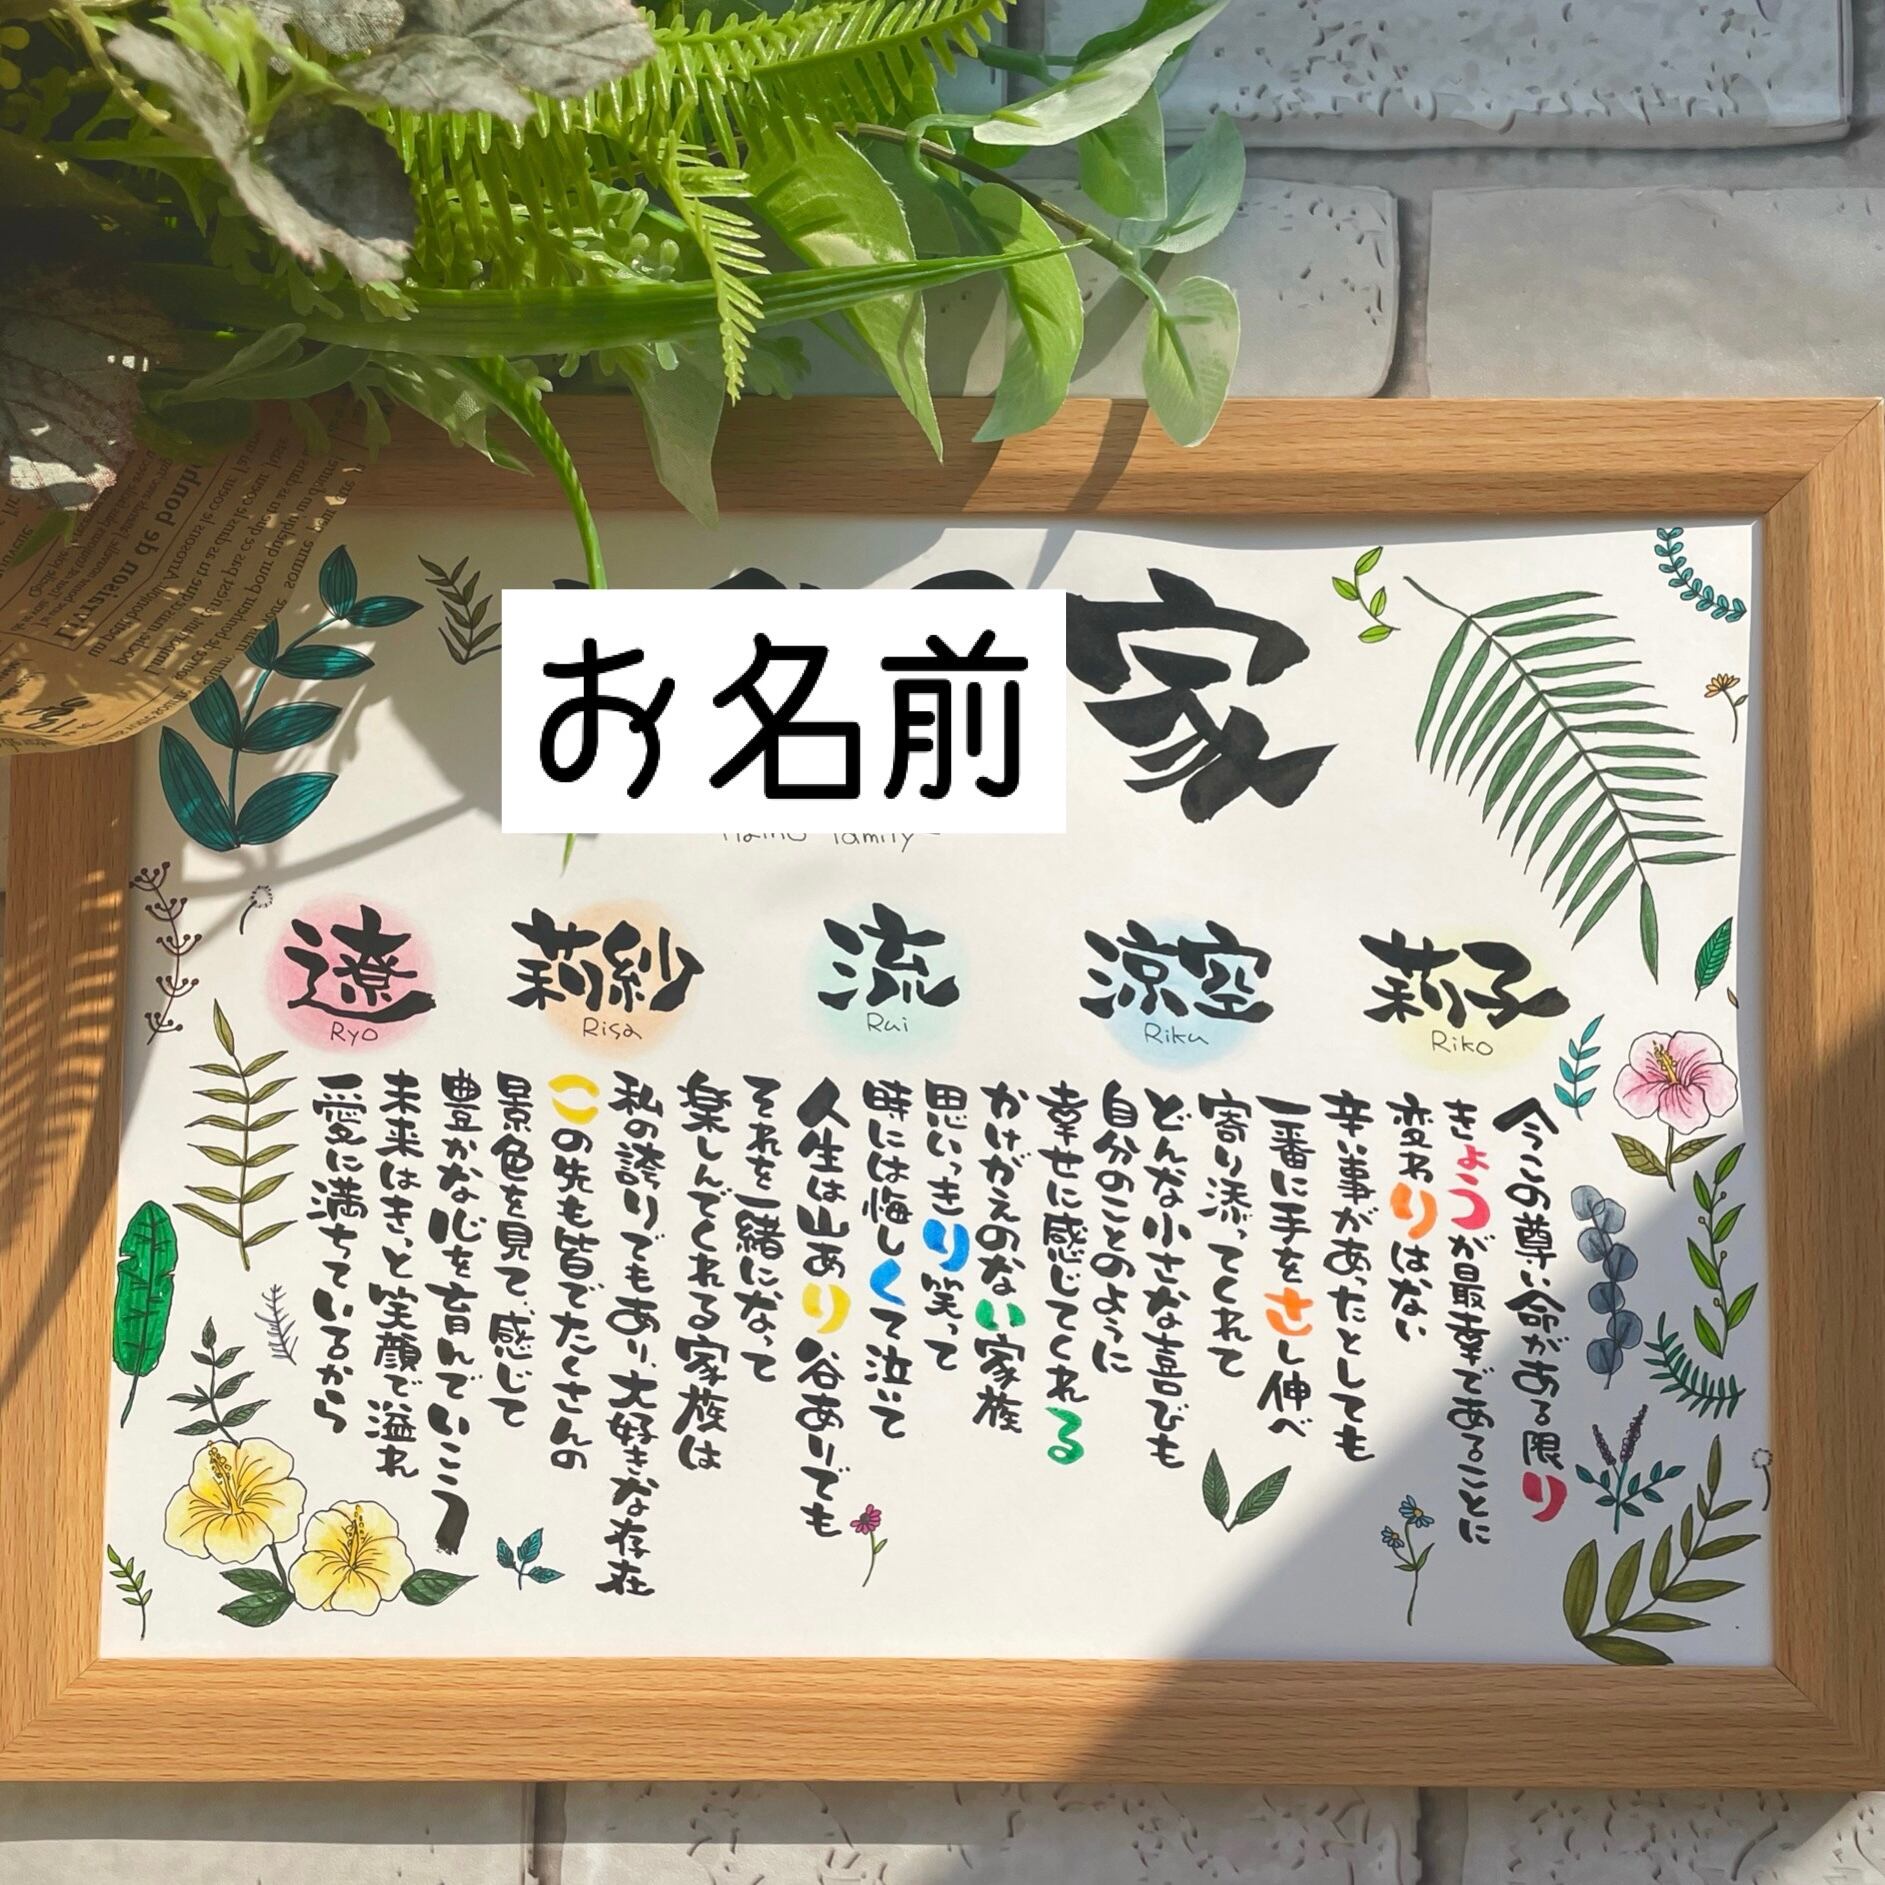 お名前
家
family
遼
Ryo
莉紗
Risa
流
Rui
涼空
Riku
莉子
Riko
今この尊い命がある限り
きょうが最幸であることに
変わりはない
辛い事があったとしても
一番に手をさし伸べ
寄り添ってくれて
どんな小さな喜びも
自分のことのように
幸せに感じてくれる
かけがえのない家族
思いっきり笑って
時には悔しくて泣いて
人生は山あり谷ありでも
それを一緒になって
楽しんでくれる家族は
私の誇りでもあり、大好きな存在
この先も皆でたくさんの
景色を見て、感じて
豊かな心を育んでいこう
未来はきっと笑顔で溢れ
愛に満ちているから
Livraison de bonh